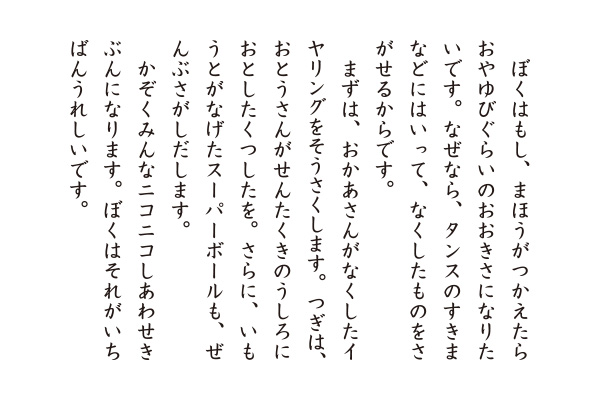 ぼくはもし、まほうがつかえたら
おやゆびぐらいのおおきさになりた
いです。なぜなら、タンスのすきま
などにはいって、なくしたものをさ
がせるからです。
まずは、おかあさんがなくしたイ
ヤリングをそうさくします。つぎは、
おとうさんがせんたくきのうしろに
おとしたくつしたを。さらに、いも
うとがなげたスーパーボールも、ぜ
んぶさがしだします。
かぞくみんなニコニコしあわせき
ぶんになります。ぼくはそれがいち
ばんうれしいです。